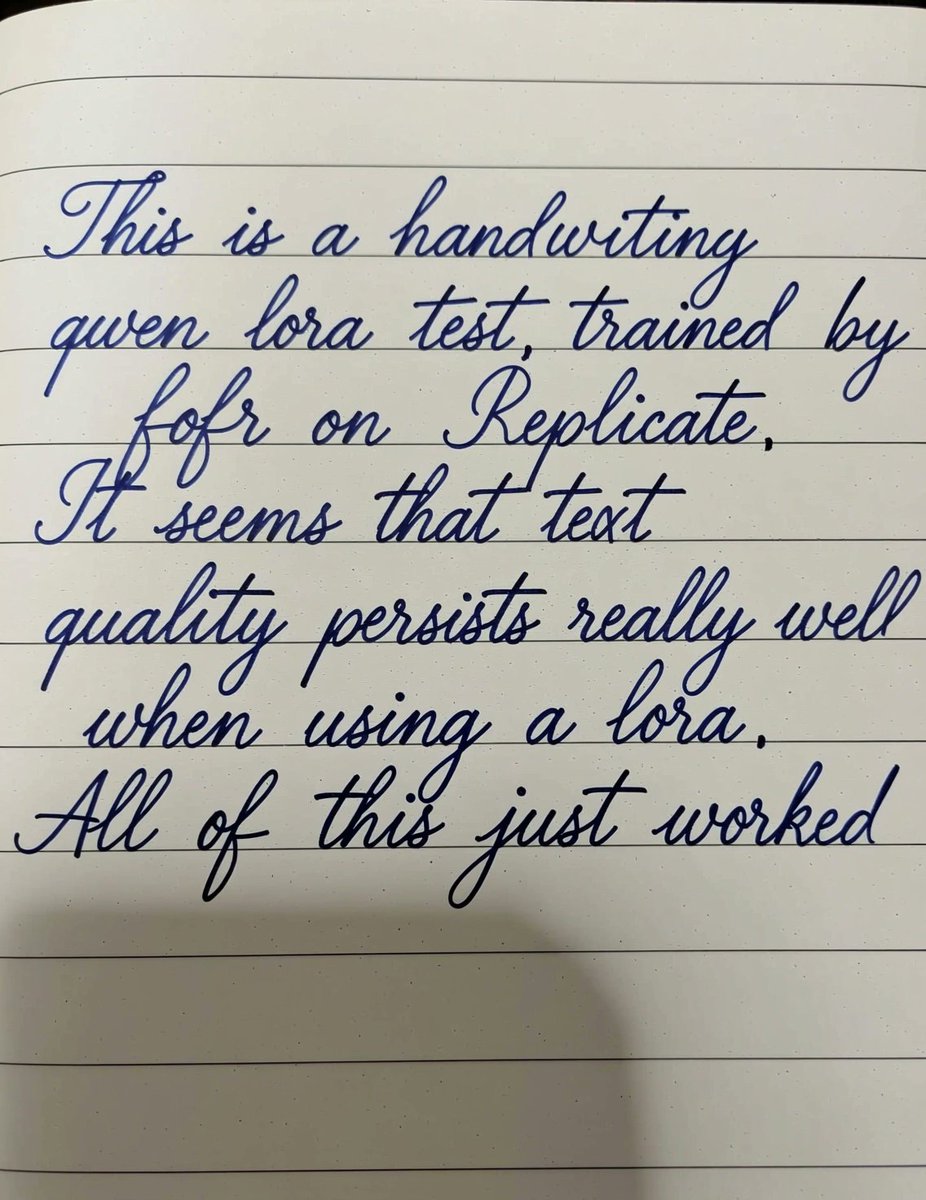 This is a handwiting
qwen lora test, trained by
fofr on Replicate.
It seems that text
quality persists really well
when using a lora.
All of this just worked